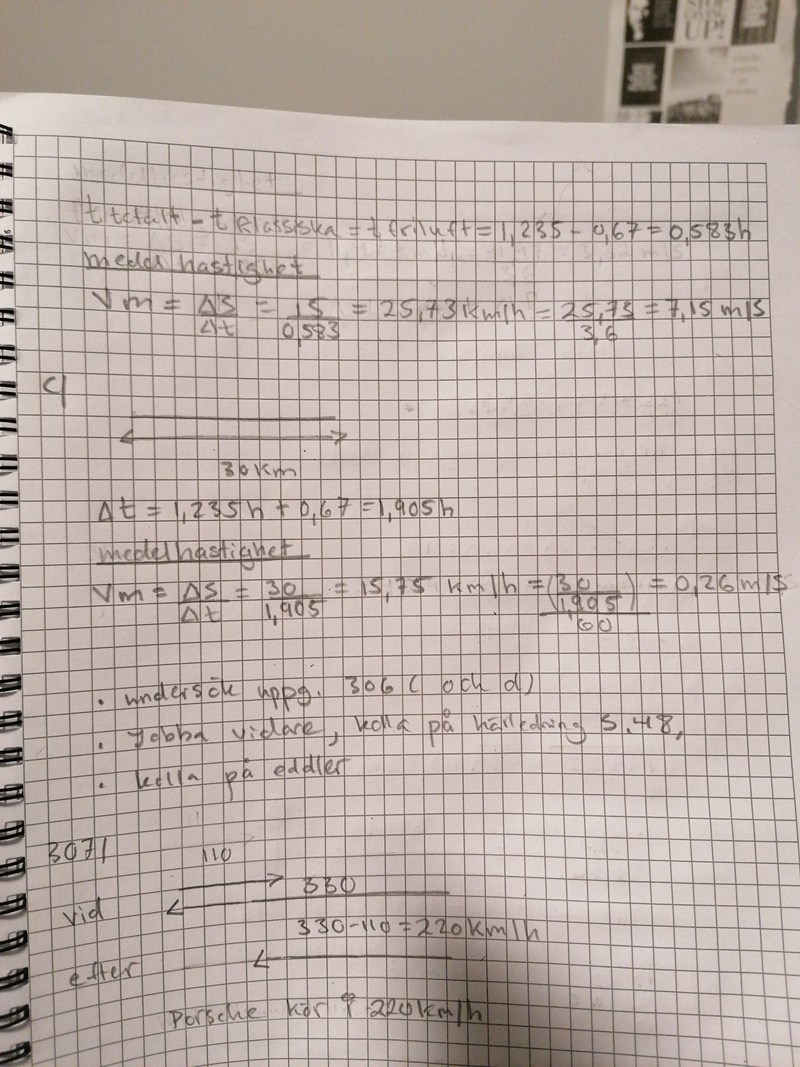 UP!
t totalt - t klassiska = t friluft = 1,235 - 0,67 = 0,583h
medelhastighet
Vm = ΔS/Δt = 15/0,583 = 25,73 km/h = 25,73/3,6 = 7,15 m/s
c)
30 km
Δt = 1,235h + 0,67 = 1,905h
medelhastighet
Vm = ΔS/Δt = 30/1,905 = 15,75 km/h = (30/1,905)/60 = 0,26 m/s
• undersök uppg. 306 c och d)
• Jobba vidare, kolla på härledning s.48,
• kolla på
307/
110
330
vid
330-110 = 220 km/h
efter
Porsche kör 220 km/h